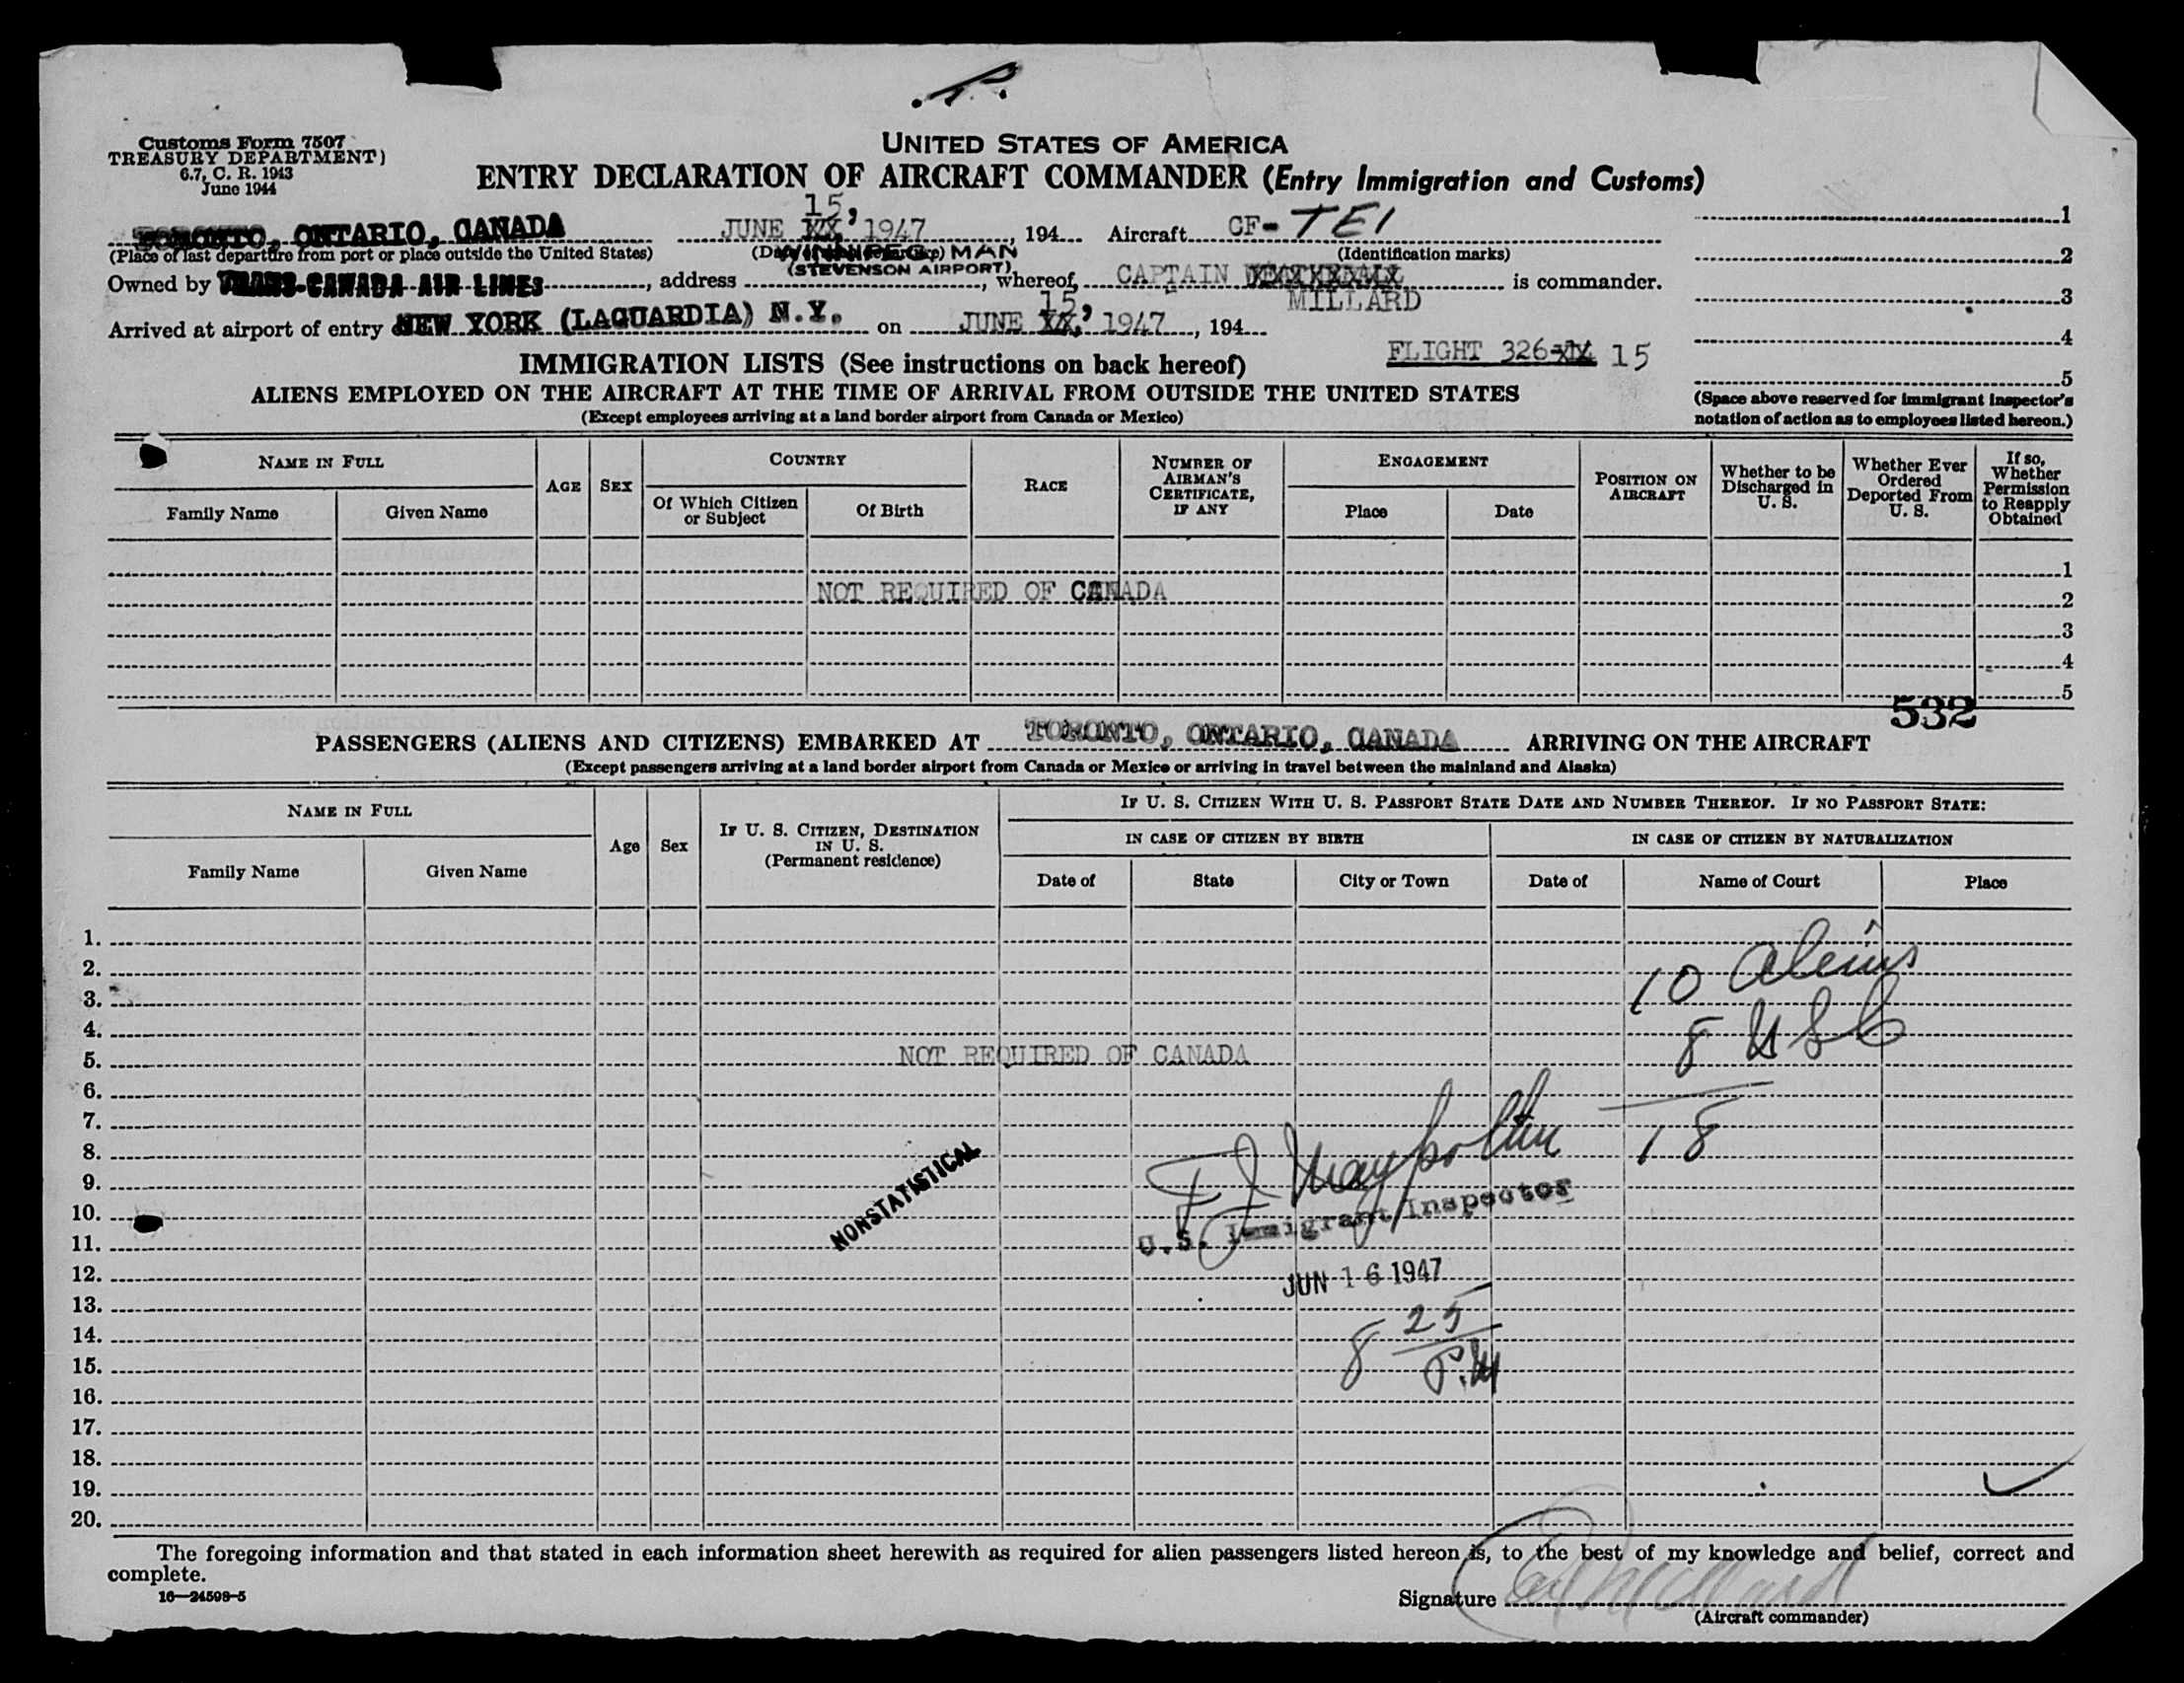 Customs Form 7507
TREASURY DEPARTMENT)
6.7, C. R. 1943
June 1944
UNITED STATES OF AMERICA
ENTRY DECLARATION OF AIRCRAFT COMMANDER (Entry Immigration and Customs)
TORONTO, ONTARIO, CANADA JUNE 15, 1947, 194 Aircraft CF-TEI 1
(Place of last departure from port or place outside the United States) (Identification marks) 2
WINNIPEG MAN
(STEVENSON AIRPORT)
Owned by TRANS-CANADA AIR LINES, address , whereof CAPTAIN MILLARD is commander. 3
Arrived at airport of entry NEW YORK (LAGUARDIA) N.Y. on JUNE 15, 1947, 194 4
IMMIGRATION LISTS (See instructions on back hereof) FLIGHT 326 15 5
ALIENS EMPLOYED ON THE AIRCRAFT AT THE TIME OF ARRIVAL FROM OUTSIDE THE UNITED STATES
(Except employees arriving at a land border airport from Canada or Mexico)
(Space above reserved for immigrant inspector's
notation of action as to employees listed hereon.)
NAME IN FULL
Family Name Given Name
AGE SEX
COUNTRY
Of Which Citizen or Subject Of Birth
RACE
NUMBER OF AIRMAN'S CERTIFICATE, IF ANY
ENGAGEMENT
Place Date
POSITION ON AIRCRAFT
Whether to be Discharged in U. S.
Whether Ever Ordered Deported From U. S.
If so, Whether Permission to Reapply Obtained
1
NOT REQUIRED OF CANADA 2
3
4
5
532
PASSENGERS (ALIENS AND CITIZENS) EMBARKED AT TORONTO, ONTARIO, CANADA ARRIVING ON THE AIRCRAFT
(Except passengers arriving at a land border airport from Canada or Mexico or arriving in travel between the mainland and Alaska)
NAME IN FULL
Family Name Given Name
Age Sex
IF U. S. CITIZEN, DESTINATION IN U. S.
(Permanent residence)
IF U. S. CITIZEN WITH U. S. PASSPORT STATE DATE AND NUMBER THEREOF. IF NO PASSPORT STATE:
IN CASE OF CITIZEN BY BIRTH IN CASE OF CITIZEN BY NATURALIZATION
Date of State City or Town Date of Name of Court Place
1.
2. 10 Aliens
3.
4. 8 USC
5. NOT REQUIRED OF CANADA
6.
7.
8. 18
9. NONSTATISTICAL
10. U.S. Immigrant Inspector
11.
12. JUN 16 1947
13.
14. 8 25
15. P.M
16.
17.
18.
19.
20.
The foregoing information and that stated in each information sheet herewith as required for alien passengers listed hereon is, to the best of my knowledge and belief, correct and
complete.
16—24598-5
Signature Millard
(Aircraft commander)